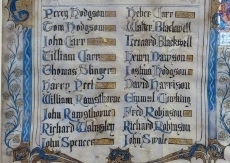 Percy Hodgson
Tom Hodgson
John Carr
William Carr
Thomas Slinger
Harry Peel
William Ramsthorne
John Ramsthorne
Richard Walmsley
John Spencer
Heber Carr
Walter Blackwell
Leonard Blackwell
Henry Dawson
Joshua Hodgson
David Harrison
Fred Robinson
Richard Robinson
John Swale